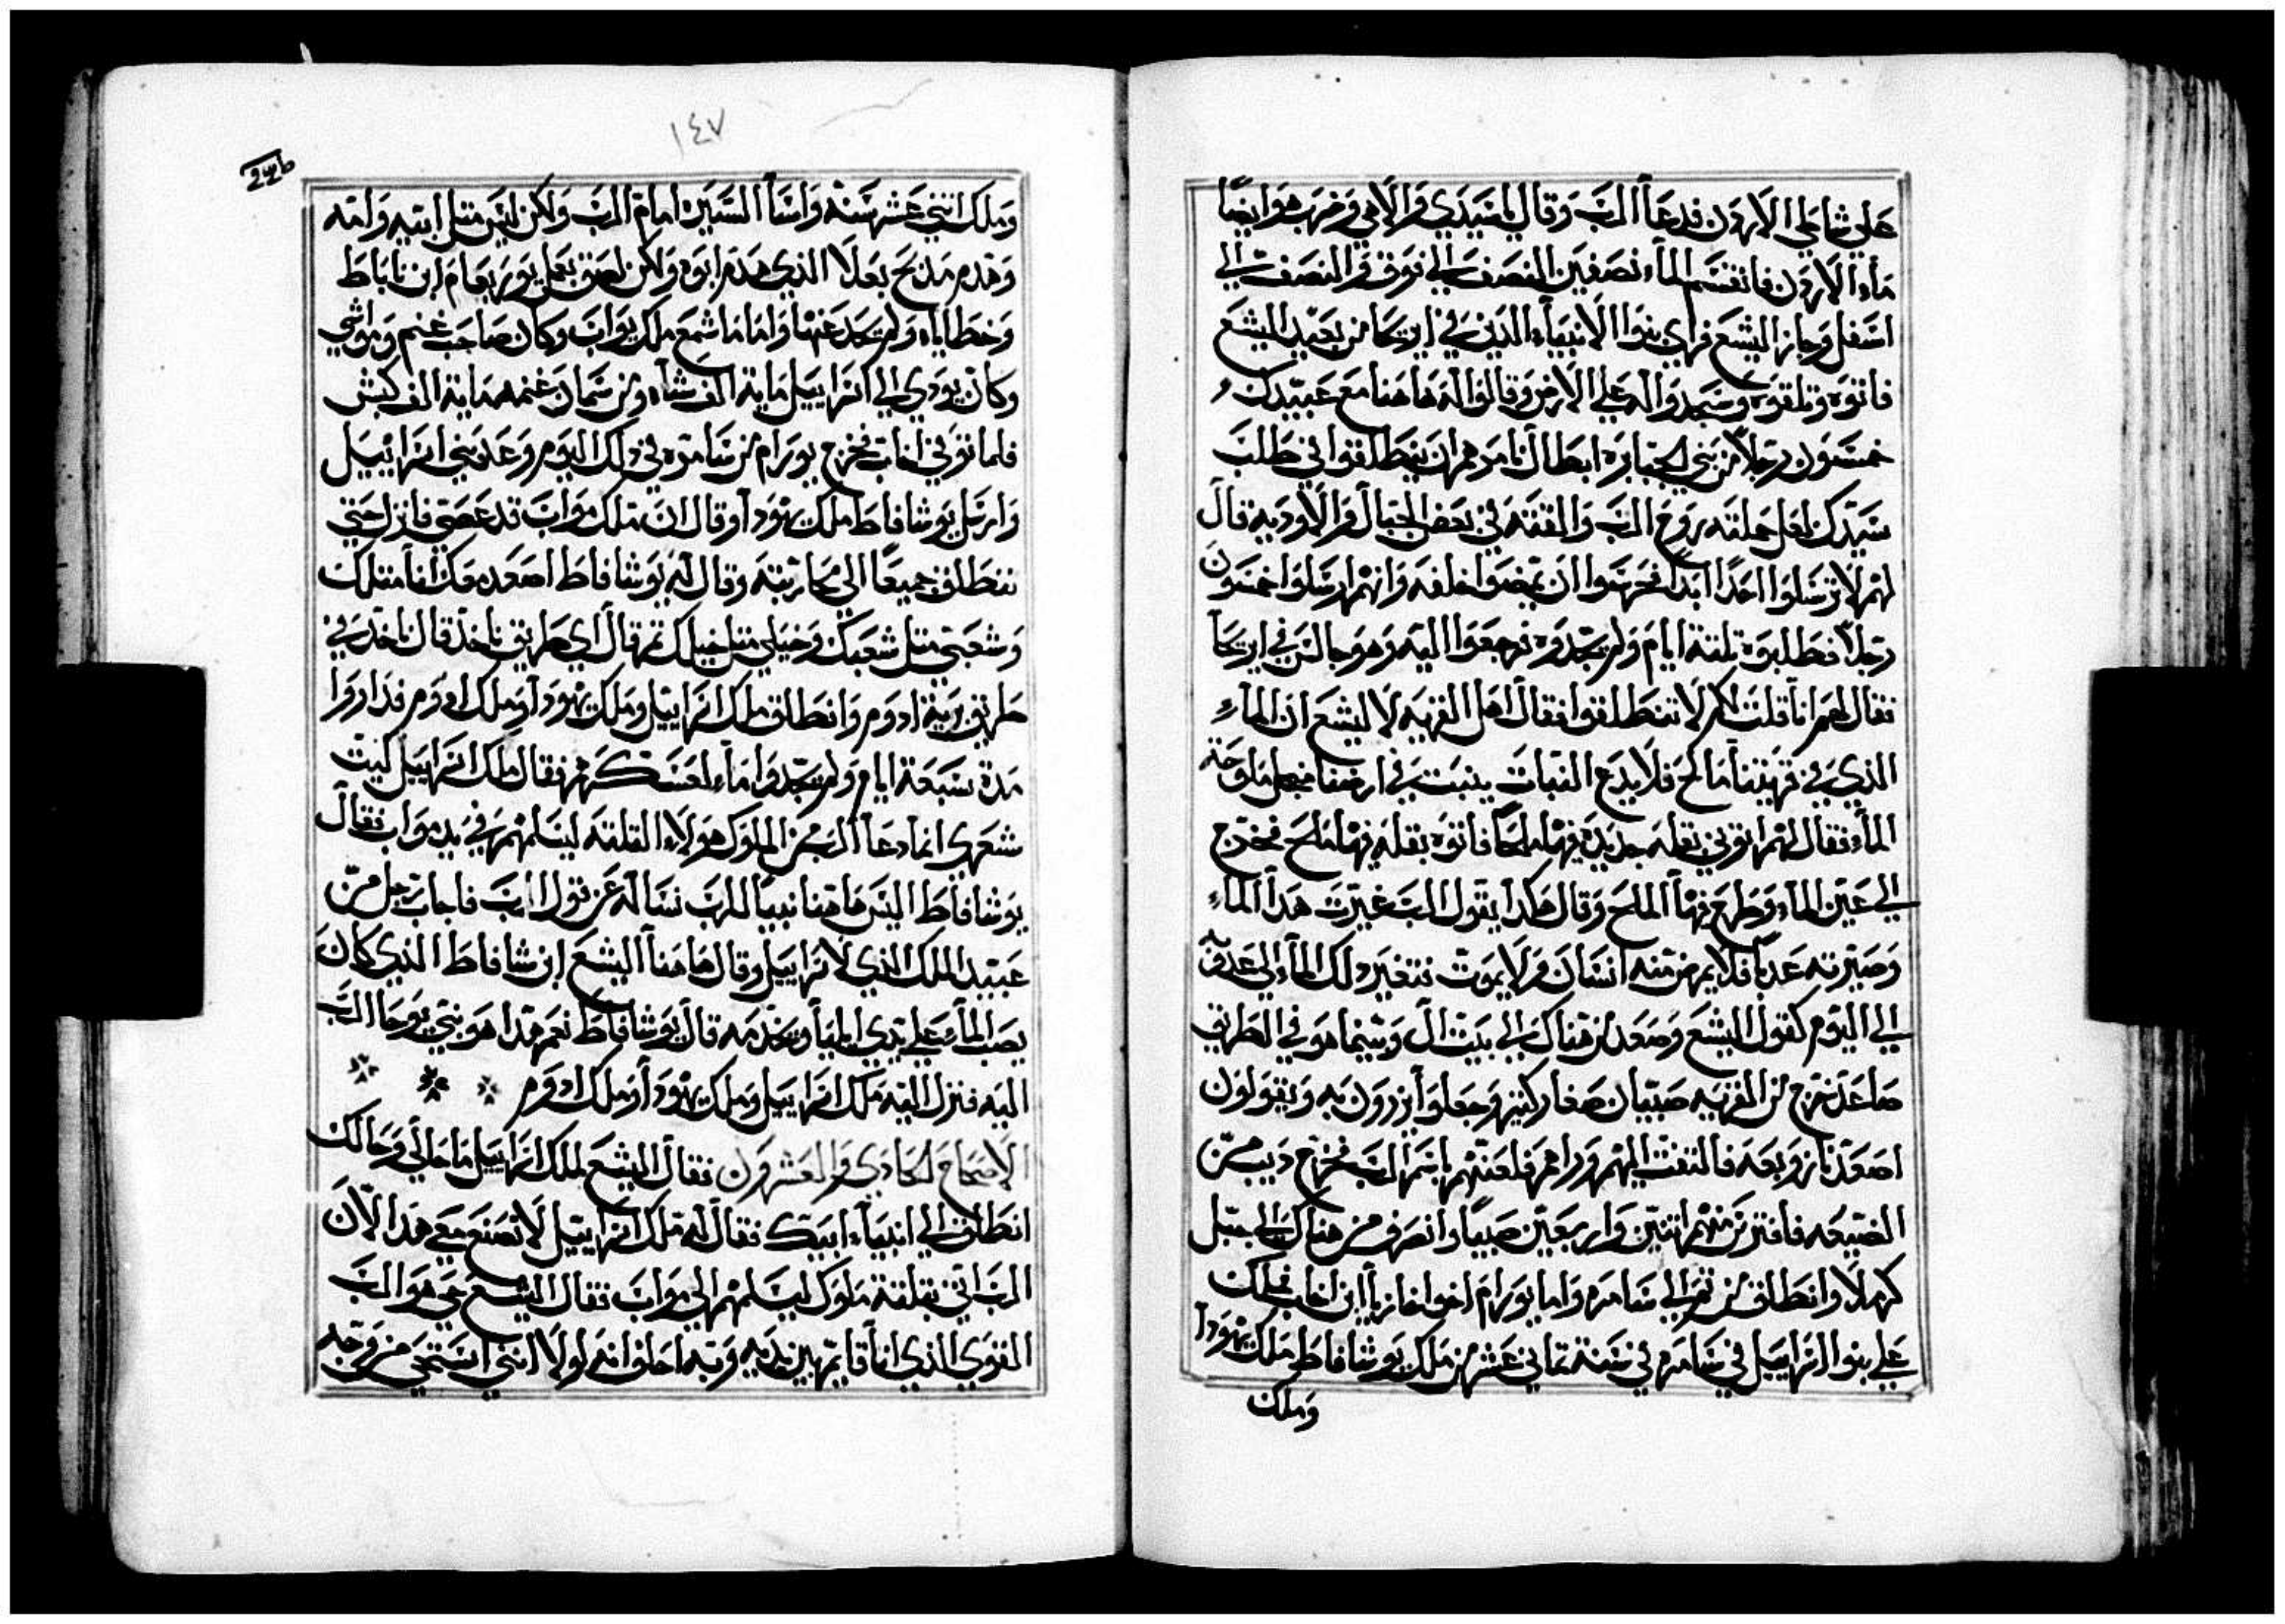 علي شاطي الاردن فدعا الرب وقال يا سيدي والاهي وضرب هو ايضًا
ماء الاردن فانقسم الماء نصفين النصف الي فوق والنصف الي
اسفل وجاز اليشع فراي بنوا الانبياء الذين في اريحا من بعيد اليشع
فاتوه وتلقوه وسجدوا له علي الارض وقالوا له هاهنا مع عبيدك
خمسون رجلاً من بني الجبابره ابطال نامرهم ان ينطلقوا في طلب
سيدك لعل حملته روح الرب والقته في بعض الجبال والاوديه قال
لهم لا ترسلوا احدًا ابدًا فحرسوا ان يمضوا خلفه وانهم ارسلوا خمسون
رجلاً فطلبوه تلتة ايام ولم يجدوه فرجعوا اليه وهو جالس في اريحا
فقال لهم انا قلت لكم لا تنطلقوا فقال اهل القريه لاليشع ان الماء
الذي في قريتنا مالح فلا يدع النبات ينبت في ارضنا من اجل ملوحة
الماء فقال لهم ايتوني بقله جديده فيها ملحًا فاتوه بقله فيها ملح فخرج
الي عين الماء وطرح فيها الملح وقال هكدا يقول الرب غيرت هدا الماء
وصيرته عدبًا فلا يمرض منه انسان ولا يموت فتغير دلك الماء الي عدق
الي اليوم كقول اليشع وصعد من هناك الي بيت ال وبينما هو في الطريق
صاعد خرج من القريه صبيان صغار كتير وجعلوا يزدون به ويقولون
اصعد يا زوبعه فالتفت اليهم وراهم فلعنهم باسم الرب فخرج ديب من
الضيعه فافترس منهم اتنين واربعين صبيًا وانصرف من هناك الي جبل
كرملا وانطلق من تم الي سامره واما يورام اخوا اخازيا ابن اخاب فملك
علي بنوا اسراييل في سامره في سنة تماني عشر من ملك يوشافاط ملك يهودا
وملك
١٤٧
وملك اتني عشر سنه واسا السيين امام الرب ولكن ليس متل ابيه وامه
وهدم مدبح بعلا الذي هدم ابوه ولكن لصق بعمل يوربعام ابن ناباط
وخطاياه ولم يحد عنها واما ماشمع ملك يواب وكان صاحب غنم ومواشي
وكان يودي الي اسراييل ماية الف شاه ومن سمان غنمه ماية الف كبش
فلما توفي اخاب خرج يورام من سامره في دلك اليوم وعد بني اسراييل
وارسل يوشافاط ملك يهودا وقال ان ملك مواب قد عصي فانزل حتي
ننطلق جميعًا الي محاربته وقال له يوشافاط اصعد هكذا انا متلك
وشعبي متل شعبك وخيلي متل خيلك تم قال اي طريق ناخد قال ناخد في
طريق برية ادوم وانطلق ملك اسراييل وملك يهودا وملك ادوم فداروا
مدة سبعة ايام ولم يجدوا ماء لعسكرهم فقال ملك اسراييل ليت
شعري انما دعا الرب من الملوك هولاء التلته ليسلمهم في يد مواب فقال
يوشافاط اليس هاهنا نبيًا للرب نساله عن قول الرب فاجاب رجل من
عبيد الملك الذي لاسراييل وقال هاهنا اليشع ابن شافاط الذي كان
يصب الماء علي يدي ايليا ويخدمه قال يوشافاط نعم هدا هو نبي يوحا الرب
اليه فنزل اليه ملك اسراييل وملك يهودا وملك ادوم
الاصحاح الحادي والعشرون فقال اليشع لملك اسراييل ما حالي وحالك
انطلق الي انبياء ابيك فقال له ملك اسراييل لا تصنع معي هدا الان
الرب اتي بتلتة ملوك ليسلمهم الي مواب فقال اليشع حي هو الرب
القوي الذي انا قايم بين يديه وبه احلف انه لولا انني استحي من وجه